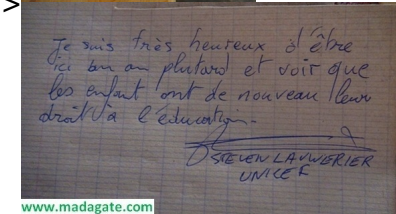 Je suis très heureux d'être
ici un an plutard et voir que
les enfant ont de nouveau leur
droit à l'éducation.
STEVEN LAUWERIER
UNICEF
www.madagate.com